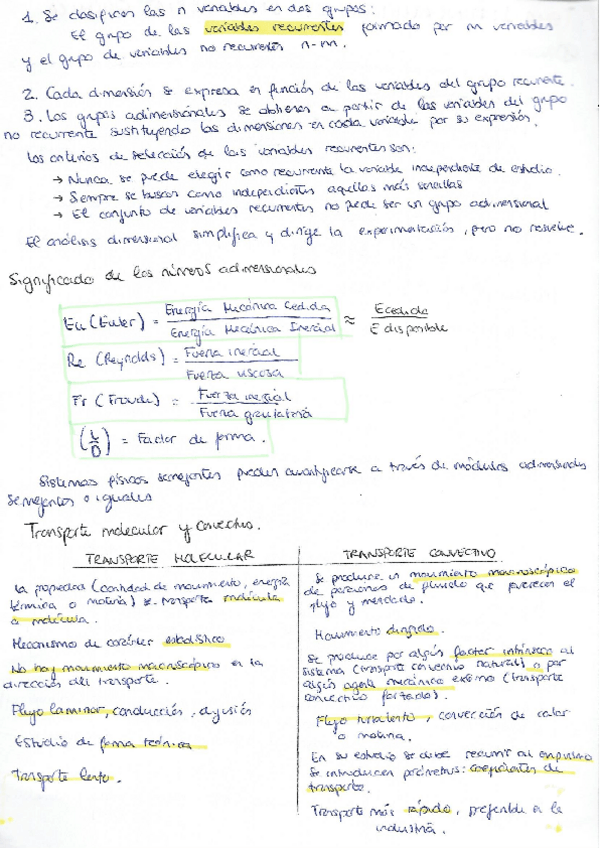 1. Se clasifican las n variables en dos grupos:
El grupo de las variables recurrentes formado por m variables
y el grupo de variables no recurrentes n-m.
2. Cada dimensión se expresa en función de las variables del grupo recurrente.
3. Los grupos adimensionales se obtienen a partir de las variables del grupo
no recurrente sustituyendo las dimensiones en cada variable por su expresión.
Los criterios de selección de las variables recurrentes son:
→ Nunca se puede elegir como recurrente la variable independiente de estudio.
→ Siempre se buscan como independientes aquellas más sencillas
→ El conjunto de variables recurrentes no puede ser un grupo adimensional
El análisis dimensional simplifica y dirige la experimentación, pero no resuelve.
Significado de los números adimensionales
Eu (Euler) = Energía Mecánica Cedida / Energía Mecánica Inercial ≈ E cedida / E disponible
Re (Reynolds) = Fuerza inercial / Fuerza viscosa
Fr (Froude) = Fuerza inercial / Fuerza gravitatoria
(L/D) = Factor de forma.
Sistemas físicos semejantes pueden cuantificarse a través de módulos adimensionales
semejantes o iguales
Transporte molecular y convectivo.
TRANSPORTE MOLECULAR
La propiedad (cantidad de movimiento, energía
térmica o materia) se transporta molécula
a molécula.
Mecanismo de carácter estadístico
No hay movimiento macroscópico en la
dirección del transporte.
Flujo laminar, conducción, difusión
Estudio de forma teórica
Transporte lento.
TRANSPORTE CONVECTIVO
Se produce un movimiento macroscópico
de porciones de fluido que favorecen el
flujo y mezclado.
Movimiento dirigido.
Se produce por algún factor intrínseco al
sistema (transporte convectivo natural) o por
algún agente mecánico externo (transporte
convectivo forzado).
Flujo turbulento, convección de calor
o materia.
En su estudio se debe recurrir al empirismo
Se introducen parámetros: coeficientes de
transporte.
Transporte más rápido, preferible en la
industria.